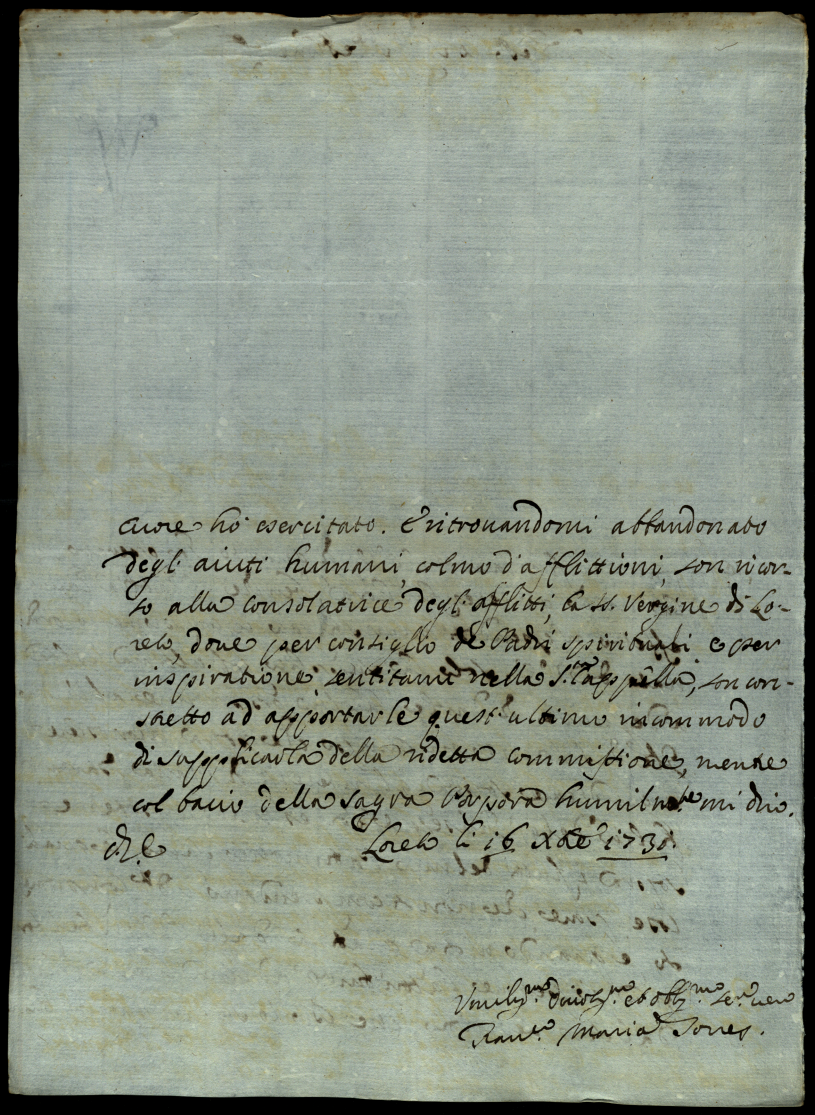 cuore hò esercitato. E ritrouandomi abbandonato
degl'aiuti humani, colmo d'afflittioni, son ricor-
so alla consolatrice degl'afflitti, la SS. Vergine di Lo-
reto, doue per consiglio de Padri spirituali e per
inspiratione sentitami nella S. Cappella, son con-
stretto ad apportarle quest'ultimo incommodo
di supplicarla della ridetta commissione, mentre
col bacio della sagra Porpora humilm.te mi dico.
D. E. Loreto li 16 Xbre 1730.
Umiliss.mo Diuotiss.mo et Obblig.mo Ser.re vero
Fran.co Maria Torres.